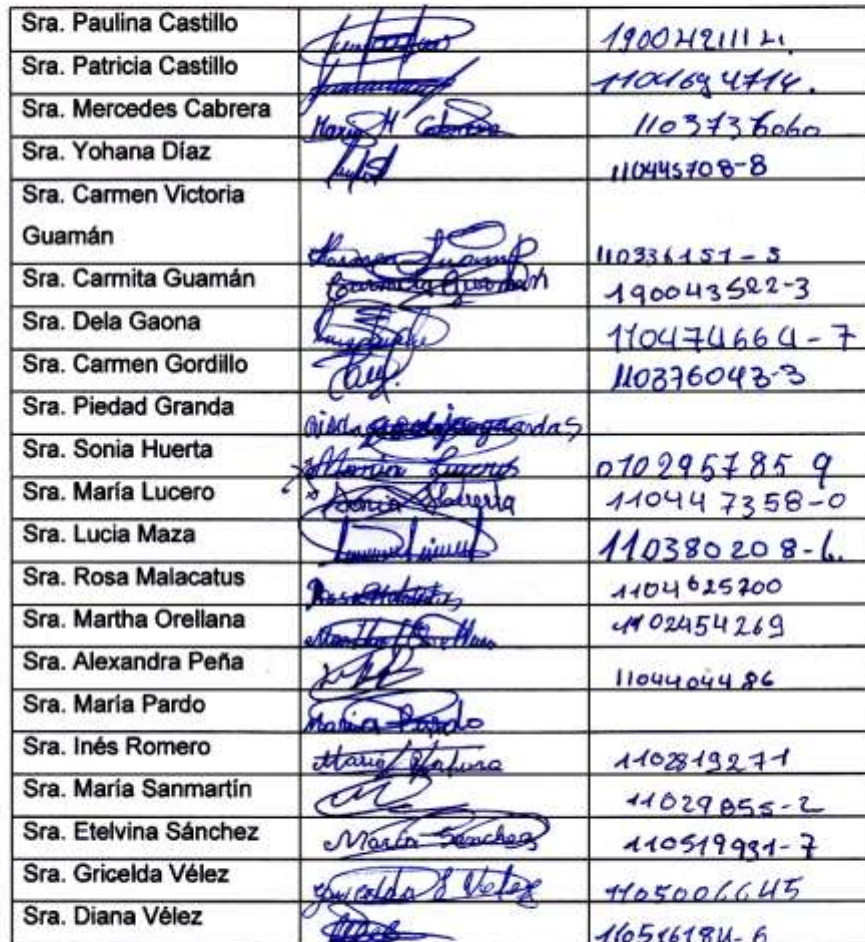 Sra. Paulina Castillo
Sra. Patricia Castillo 1101694714.
Sra. Mercedes Cabrera Maria M Cabrera 1103736060
Sra. Yohana Díaz 110445708-8
Sra. Carmen Victoria
Guamán Carmen Guamán 110336151-3
Sra. Carmita Guamán Carmita Guamán 190043522-3
Sra. Dela Gaona 110474664-7
Sra. Carmen Gordillo 110376043-3
Sra. Piedad Granda
Sra. Sonia Huerta Maria Lucero 010295785 9
Sra. María Lucero Sonia 110447358-0
Sra. Lucia Maza
Sra. Rosa Malacatus Rosa 1104625700
Sra. Martha Orellana Martha Orellana 1102454269
Sra. Alexandra Peña 1104404486
Sra. María Pardo Maria Pardo
Sra. Inés Romero Maria 1102819271
Sra. María Sanmartín 11029855-2
Sra. Etelvina Sánchez Maria Sanchez 110519931-7
Sra. Gricelda Vélez Gricelda Velez
Sra. Diana Vélez 110516184-6